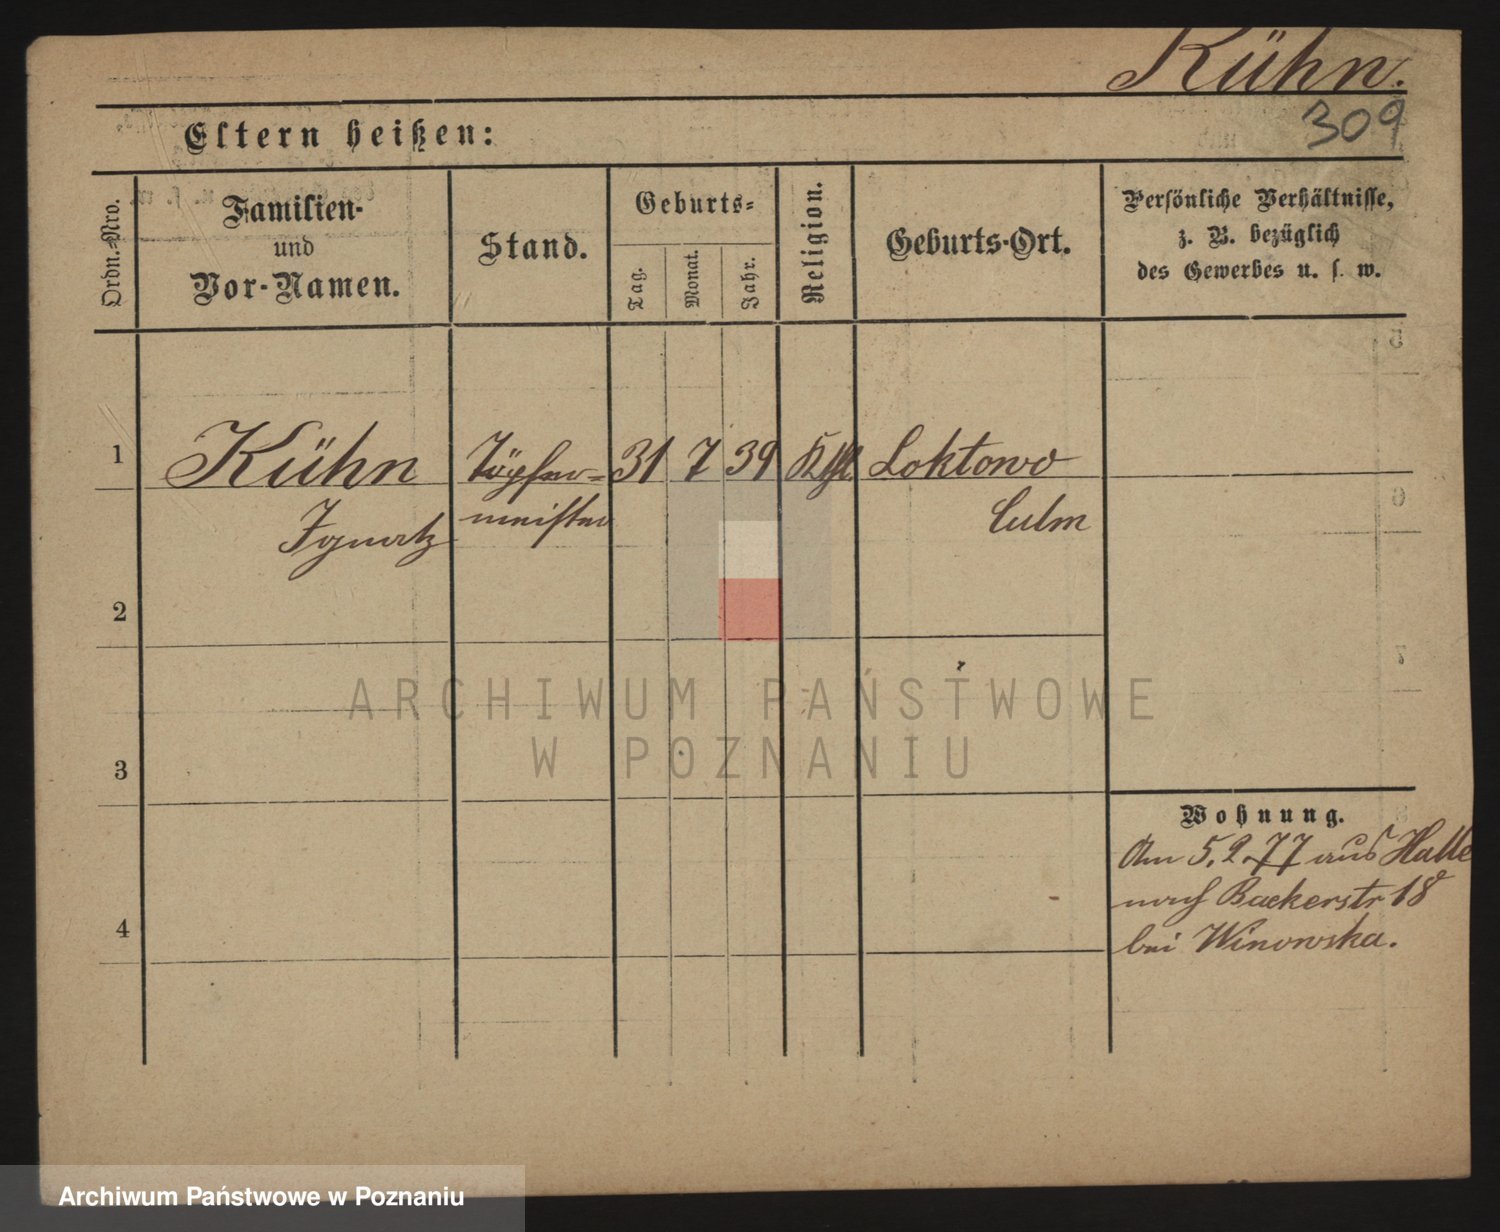 Kühn.
309
Eltern heißen:
Ordn.-Nro.
Familien-
und
Vor-Namen.
Stand.
Geburts-
Tag.
Monat.
Jahr.
Religion.
Geburts-Ort.
Persönliche Verhältnisse,
z. B. bezüglich
des Gewerbes u. s. w.
1
Kühn
Töpfer-
31
7
39
Kthl.
Loktowo
Ignatz
meister
Culm
2
ARCHIWUM PAŃSTWOWE
W POZNANIU
3
Wohnung.
Am 5.2.77 aus Halle
nach Backerstr 18
4
bei Winowska.
Archiwum Państwowe w Poznaniu